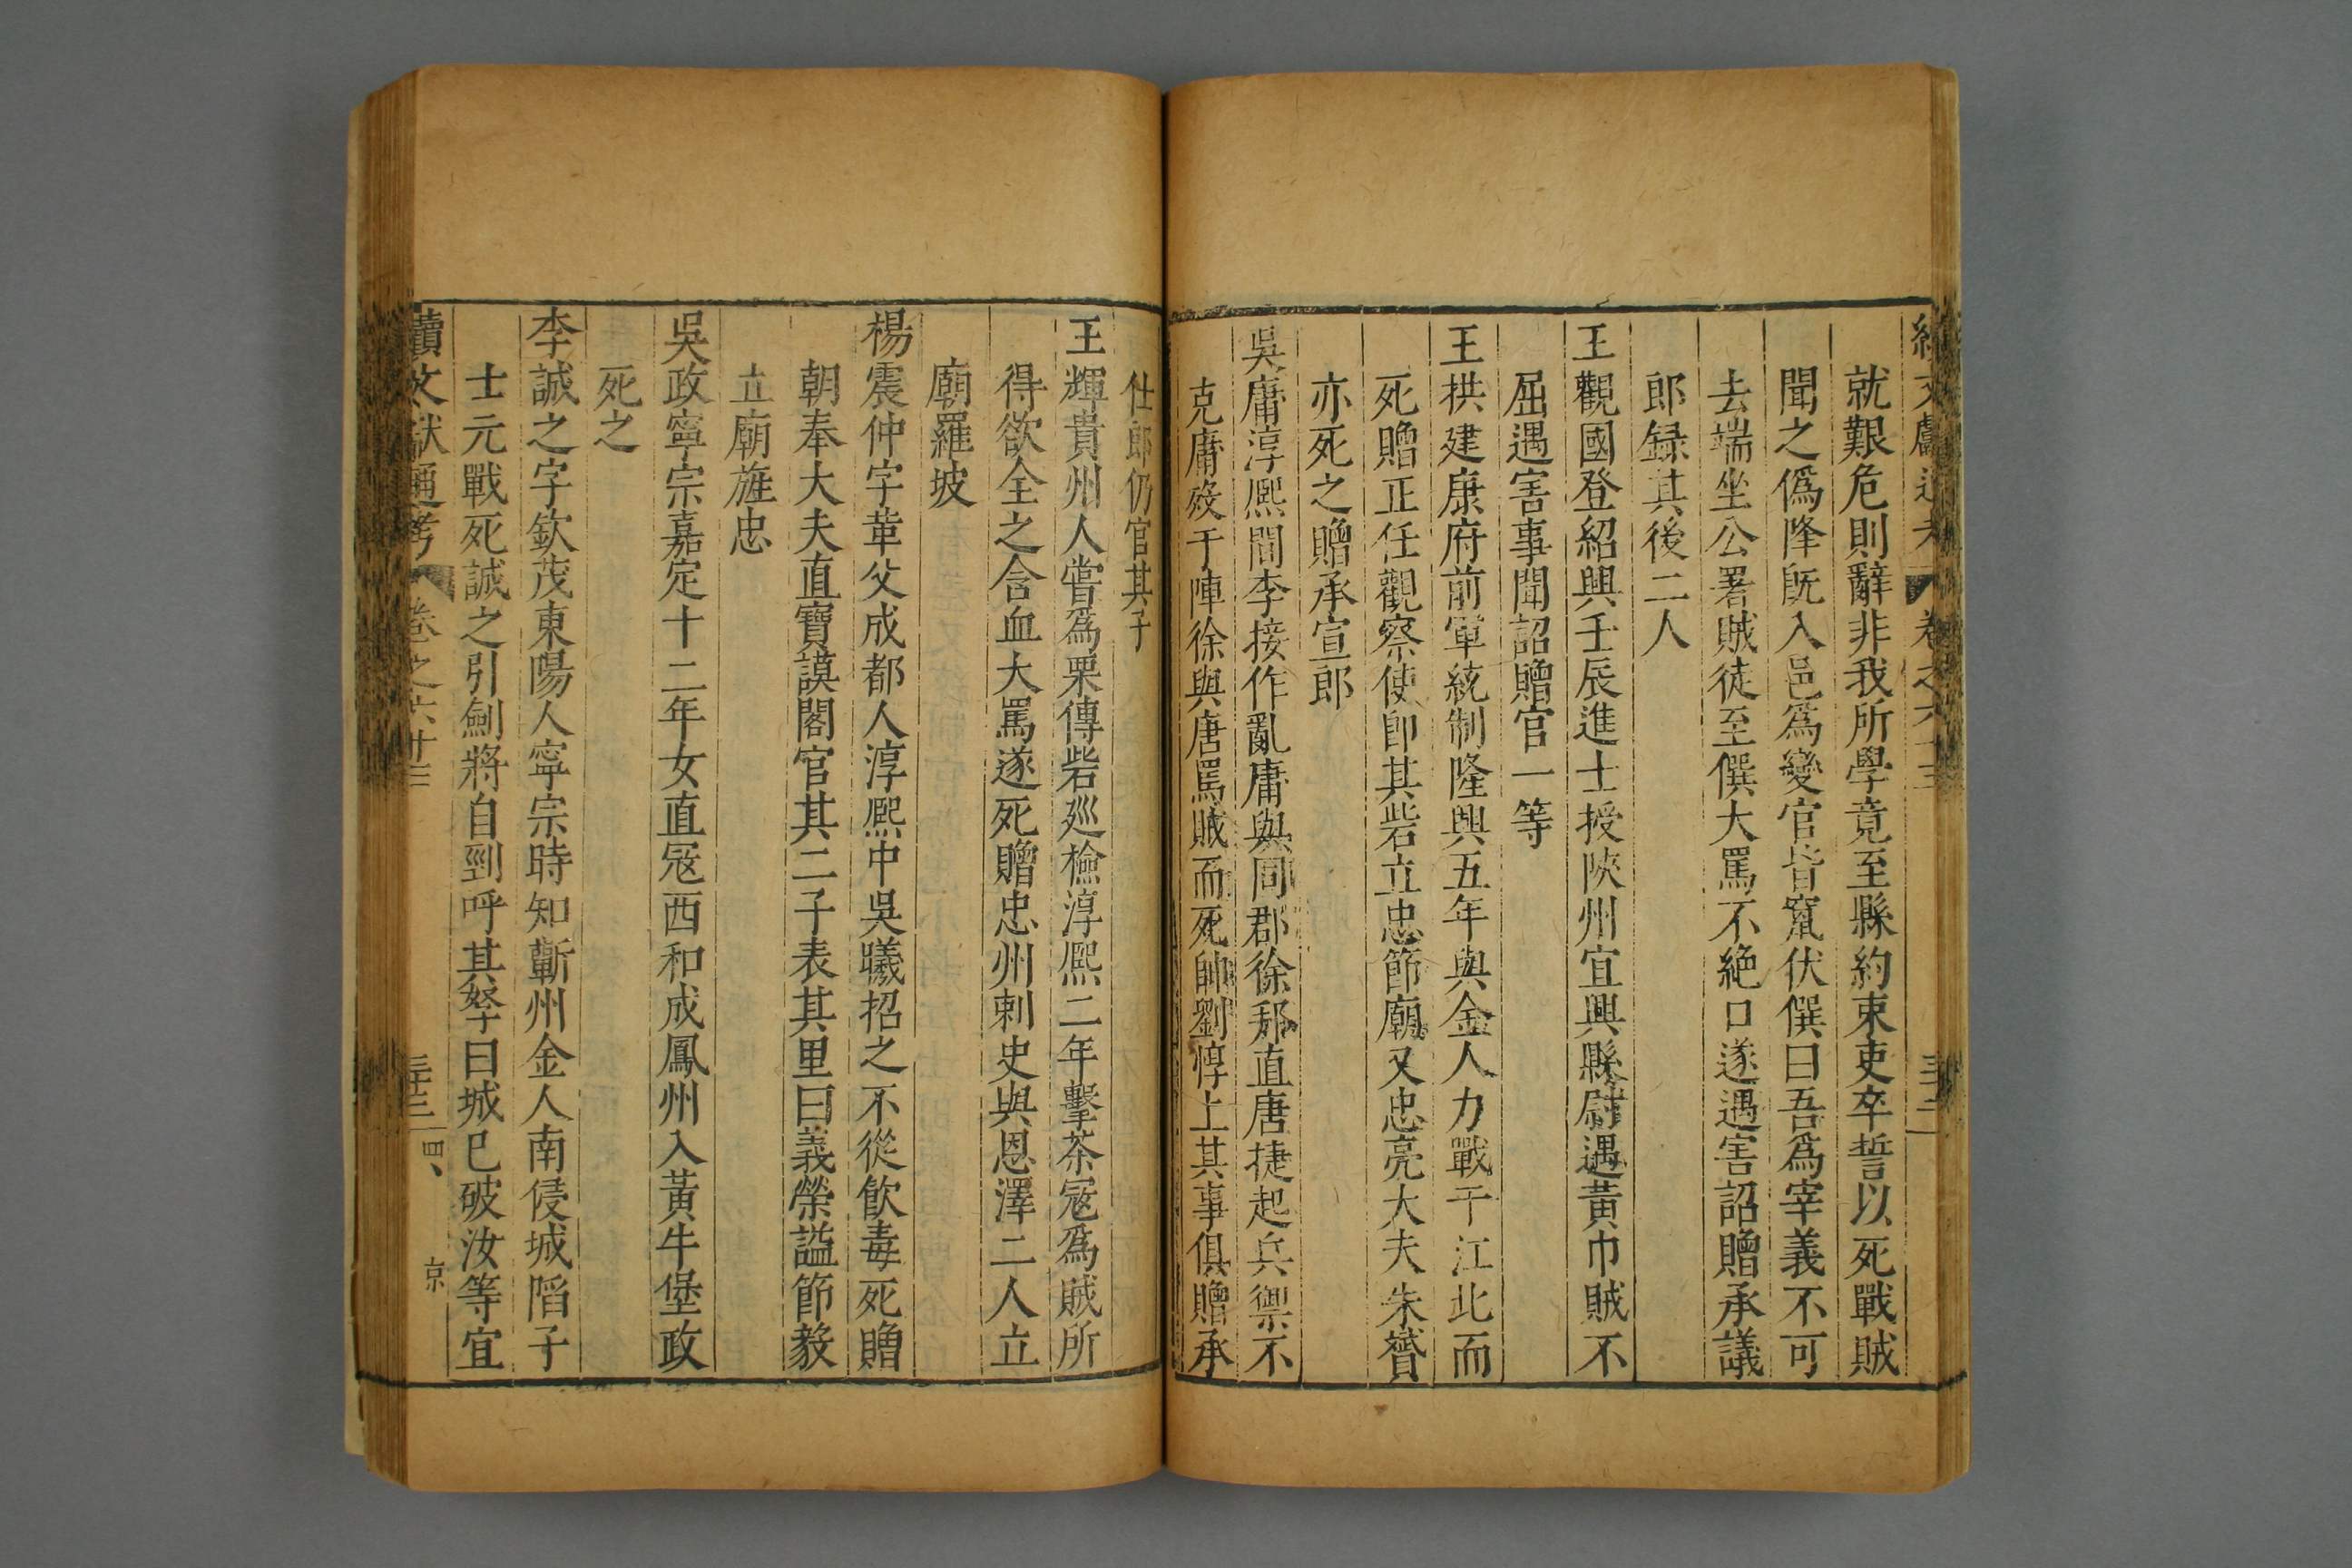 就艱危則辭非我所學竟至縣約束吏卒誓以死戰賊
聞之僞降旣入邑爲變官皆竄伏僎曰吾爲宰義不可
去端坐公署賊徒至僎大罵不絕口遂遇害詔贈承議
郎録其後二人
王觀國登紹興壬辰進士授陝州宜興縣尉遇黃巾賊不
屈遇害事聞詔贈官一等
王拱建康府前軍統制隆興五年與金人力戰于江北而
死贈正任觀察使卽其砦立忠節廟又忠亮大夫朱贇
亦死之贈承宣郎
吳庸淳熙間李接作亂庸與同郡徐郟直唐捷起兵禦不
克庸歿于陣徐與唐罵賊而死帥劉惇上其事俱贈承
仕郎仍官其子
王輝貴州人嘗爲栗傳砦廵檢淳熙二年擊茶寇爲賊所
得欲全之含血大罵遂死贈忠州刺史與恩澤二人立
廟羅坡
楊震仲字革父成都人淳熙中吳曦招之不從飮毒死贈
朝奉大夫直寶謨閣官其二子表其里曰義榮謚節毅
立廟旌忠
吳政寧宗嘉定十二年女直寇西和成鳳州入黃牛堡政
死之
李誠之字欽茂東陽人寧宗時知蘄州金人南侵城陷子
士元戰死誠之引劍將自剄呼其孥曰城已破汝等宜
續文獻通考 卷之六十三 三十三 四 京